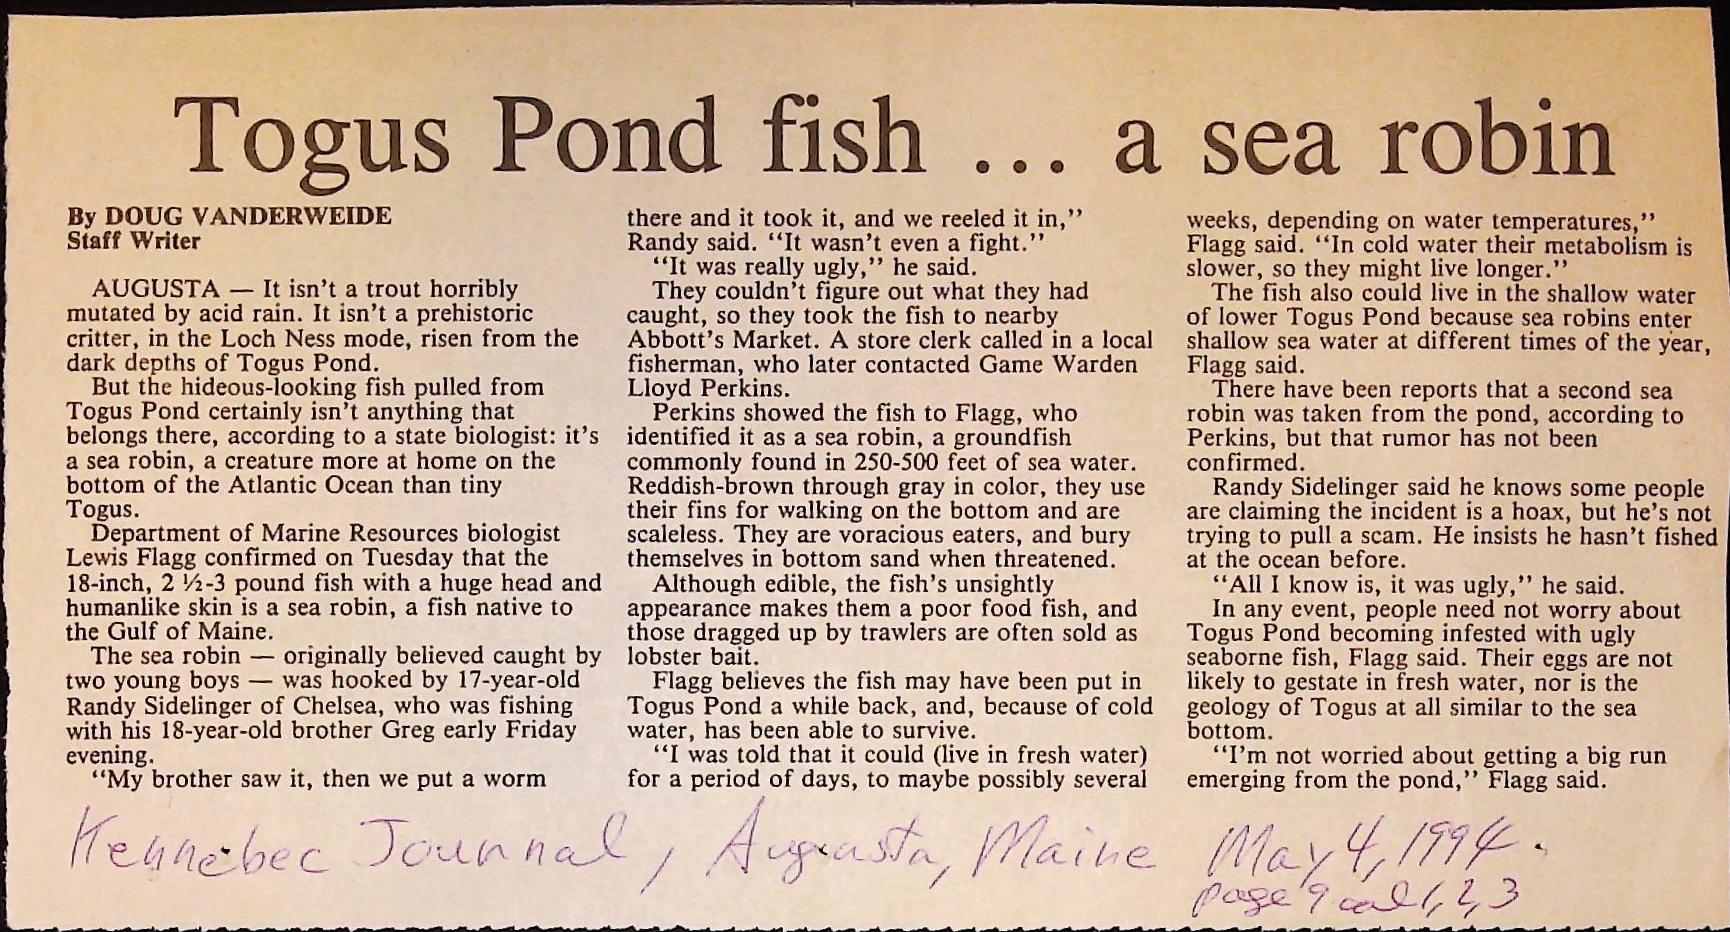 Togus Pond fish ... a sea robin
By DOUG VANDERWEIDE
Staff Writer
AUGUSTA — It isn't a trout horribly
mutated by acid rain. It isn't a prehistoric
critter, in the Loch Ness mode, risen from the
dark depths of Togus Pond.
But the hideous-looking fish pulled from
Togus Pond certainly isn't anything that
belongs there, according to a state biologist: it's
a sea robin, a creature more at home on the
bottom of the Atlantic Ocean than tiny
Togus.
Department of Marine Resources biologist
Lewis Flagg confirmed on Tuesday that the
18-inch, 2 ½-3 pound fish with a huge head and
humanlike skin is a sea robin, a fish native to
the Gulf of Maine.
The sea robin — originally believed caught by
two young boys — was hooked by 17-year-old
Randy Sidelinger of Chelsea, who was fishing
with his 18-year-old brother Greg early Friday
evening.
"My brother saw it, then we put a worm
there and it took it, and we reeled it in,"
Randy said. "It wasn't even a fight."
"It was really ugly," he said.
They couldn't figure out what they had
caught, so they took the fish to nearby
Abbott's Market. A store clerk called in a local
fisherman, who later contacted Game Warden
Lloyd Perkins.
Perkins showed the fish to Flagg, who
identified it as a sea robin, a groundfish
commonly found in 250-500 feet of sea water.
Reddish-brown through gray in color, they use
their fins for walking on the bottom and are
scaleless. They are voracious eaters, and bury
themselves in bottom sand when threatened.
Although edible, the fish's unsightly
appearance makes them a poor food fish, and
those dragged up by trawlers are often sold as
lobster bait.
Flagg believes the fish may have been put in
Togus Pond a while back, and, because of cold
water, has been able to survive.
"I was told that it could (live in fresh water)
for a period of days, to maybe possibly several
weeks, depending on water temperatures,"
Flagg said. "In cold water their metabolism is
slower, so they might live longer."
The fish also could live in the shallow water
of lower Togus Pond because sea robins enter
shallow sea water at different times of the year,
Flagg said.
There have been reports that a second sea
robin was taken from the pond, according to
Perkins, but that rumor has not been
confirmed.
Randy Sidelinger said he knows some people
are claiming the incident is a hoax, but he's not
trying to pull a scam. He insists he hasn't fished
at the ocean before.
"All I know is, it was ugly," he said.
In any event, people need not worry about
Togus Pond becoming infested with ugly
seaborne fish, Flagg said. Their eggs are not
likely to gestate in fresh water, nor is the
geology of Togus at all similar to the sea
bottom.
"I'm not worried about getting a big run
emerging from the pond," Flagg said.
Kennebec Journal, Augusta, Maine May 4, 1994.
page 9 col 1, 2, 3